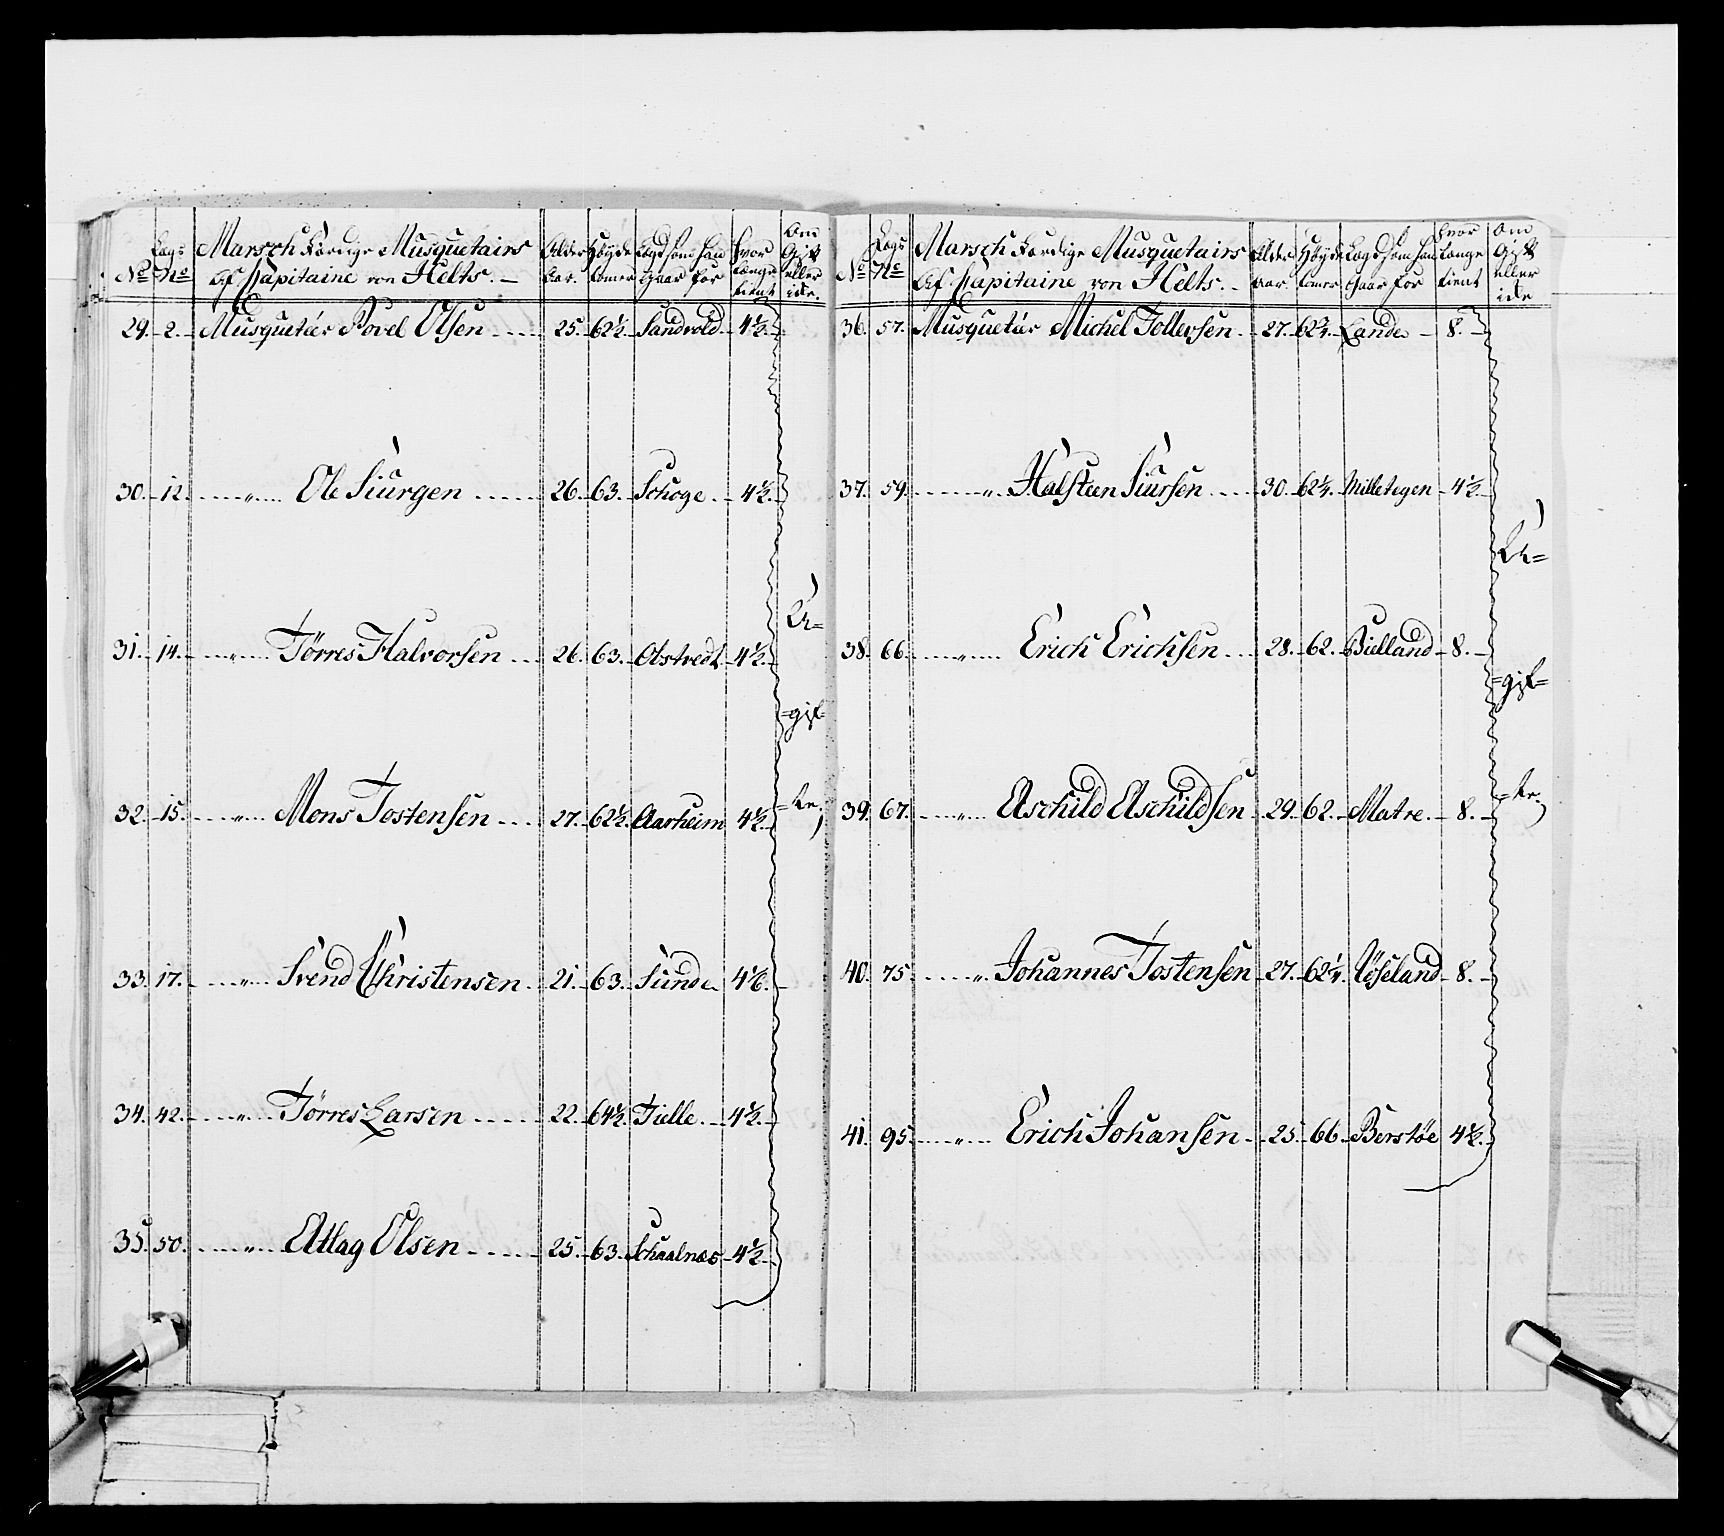 No Lægs No Marsch Færdige Musquetairs Af Kapitaine von Helts. Alder Aar. Høyde Tomer Lægd som han staar for Hvor længe tient Om Gift eller icke.
29. 2. Musquetér Povel Olsen 25. 62½ Sandvold 4½.
30. 12. „ Ole Siurgen 26. 63. Schoge 4½.
31. 14. „ Törres Halvorsen 26. 63. Obstvedt 4½.
U=
=gif=
32. 15. „ Mons Tostensen 27. 62½. Aarheim 4½.
=te.
33. 17. „ Svend Christensen 21. 63. Sunde
34. 42. „ Törres Larsen 22. 64½. Tielle 4½.
35. 50. „ Atlag Olsen 25. 63. Schaalnæs 4½.
No Lægs No Marsch Færdige Musquetairs Af Kapitaine von Helts. Alder Aar. Høyde Tomer Lægd som han staar for Hvor længe tient Om Gift eller icke
36. 57. Musquetér Michel Tollevsen 27. Lande 8.
37. 59. „ Halsteen Siursen 30. 62¼. Milletegen 4½
U=
38. 66. „ Erich Erichsen 28. 62. Bielland 8.
=gif=
39. 67. „ Aschild Aschildsen 29. 62. Matre 8.
=te.
40. 75. „ Johannes Tostensen 27. 62¼. Röseland 8.
41. 95. „ Erich Johansen 25. 66 Berstöe 4½.